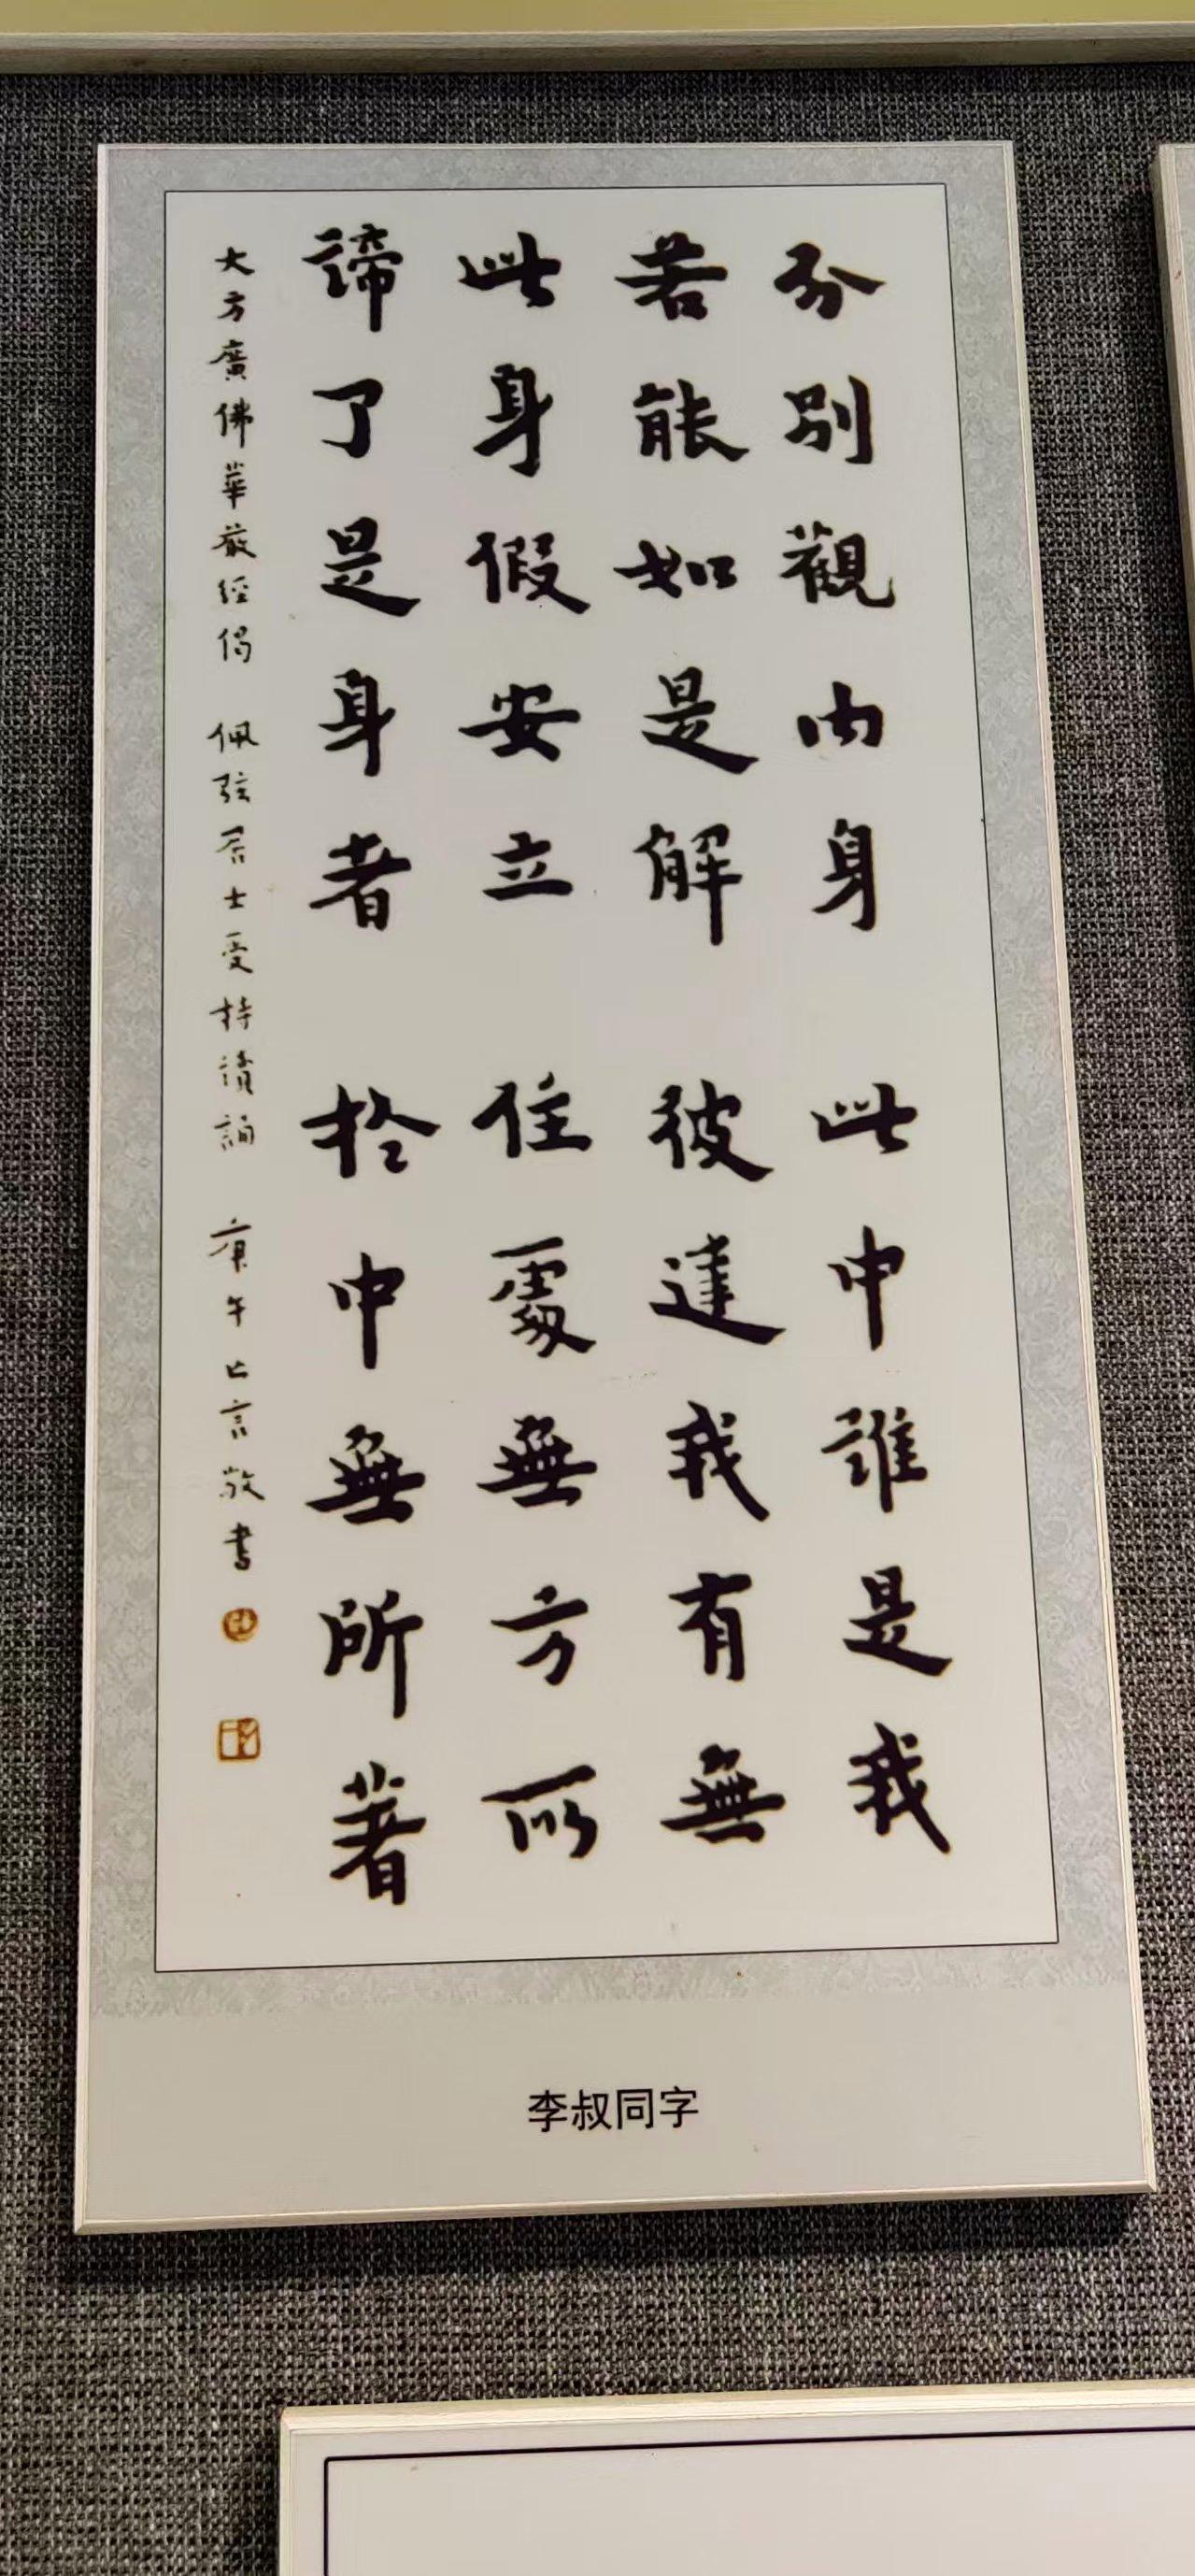 分別觀內身 此中誰是我
若能如是解 彼達我有無
此身假安立 住處無方所
諦了是身者 於中無所著
大方廣佛華嚴經偈 佩弦居士受持讀誦 庚午亡言敬書
李叔同字